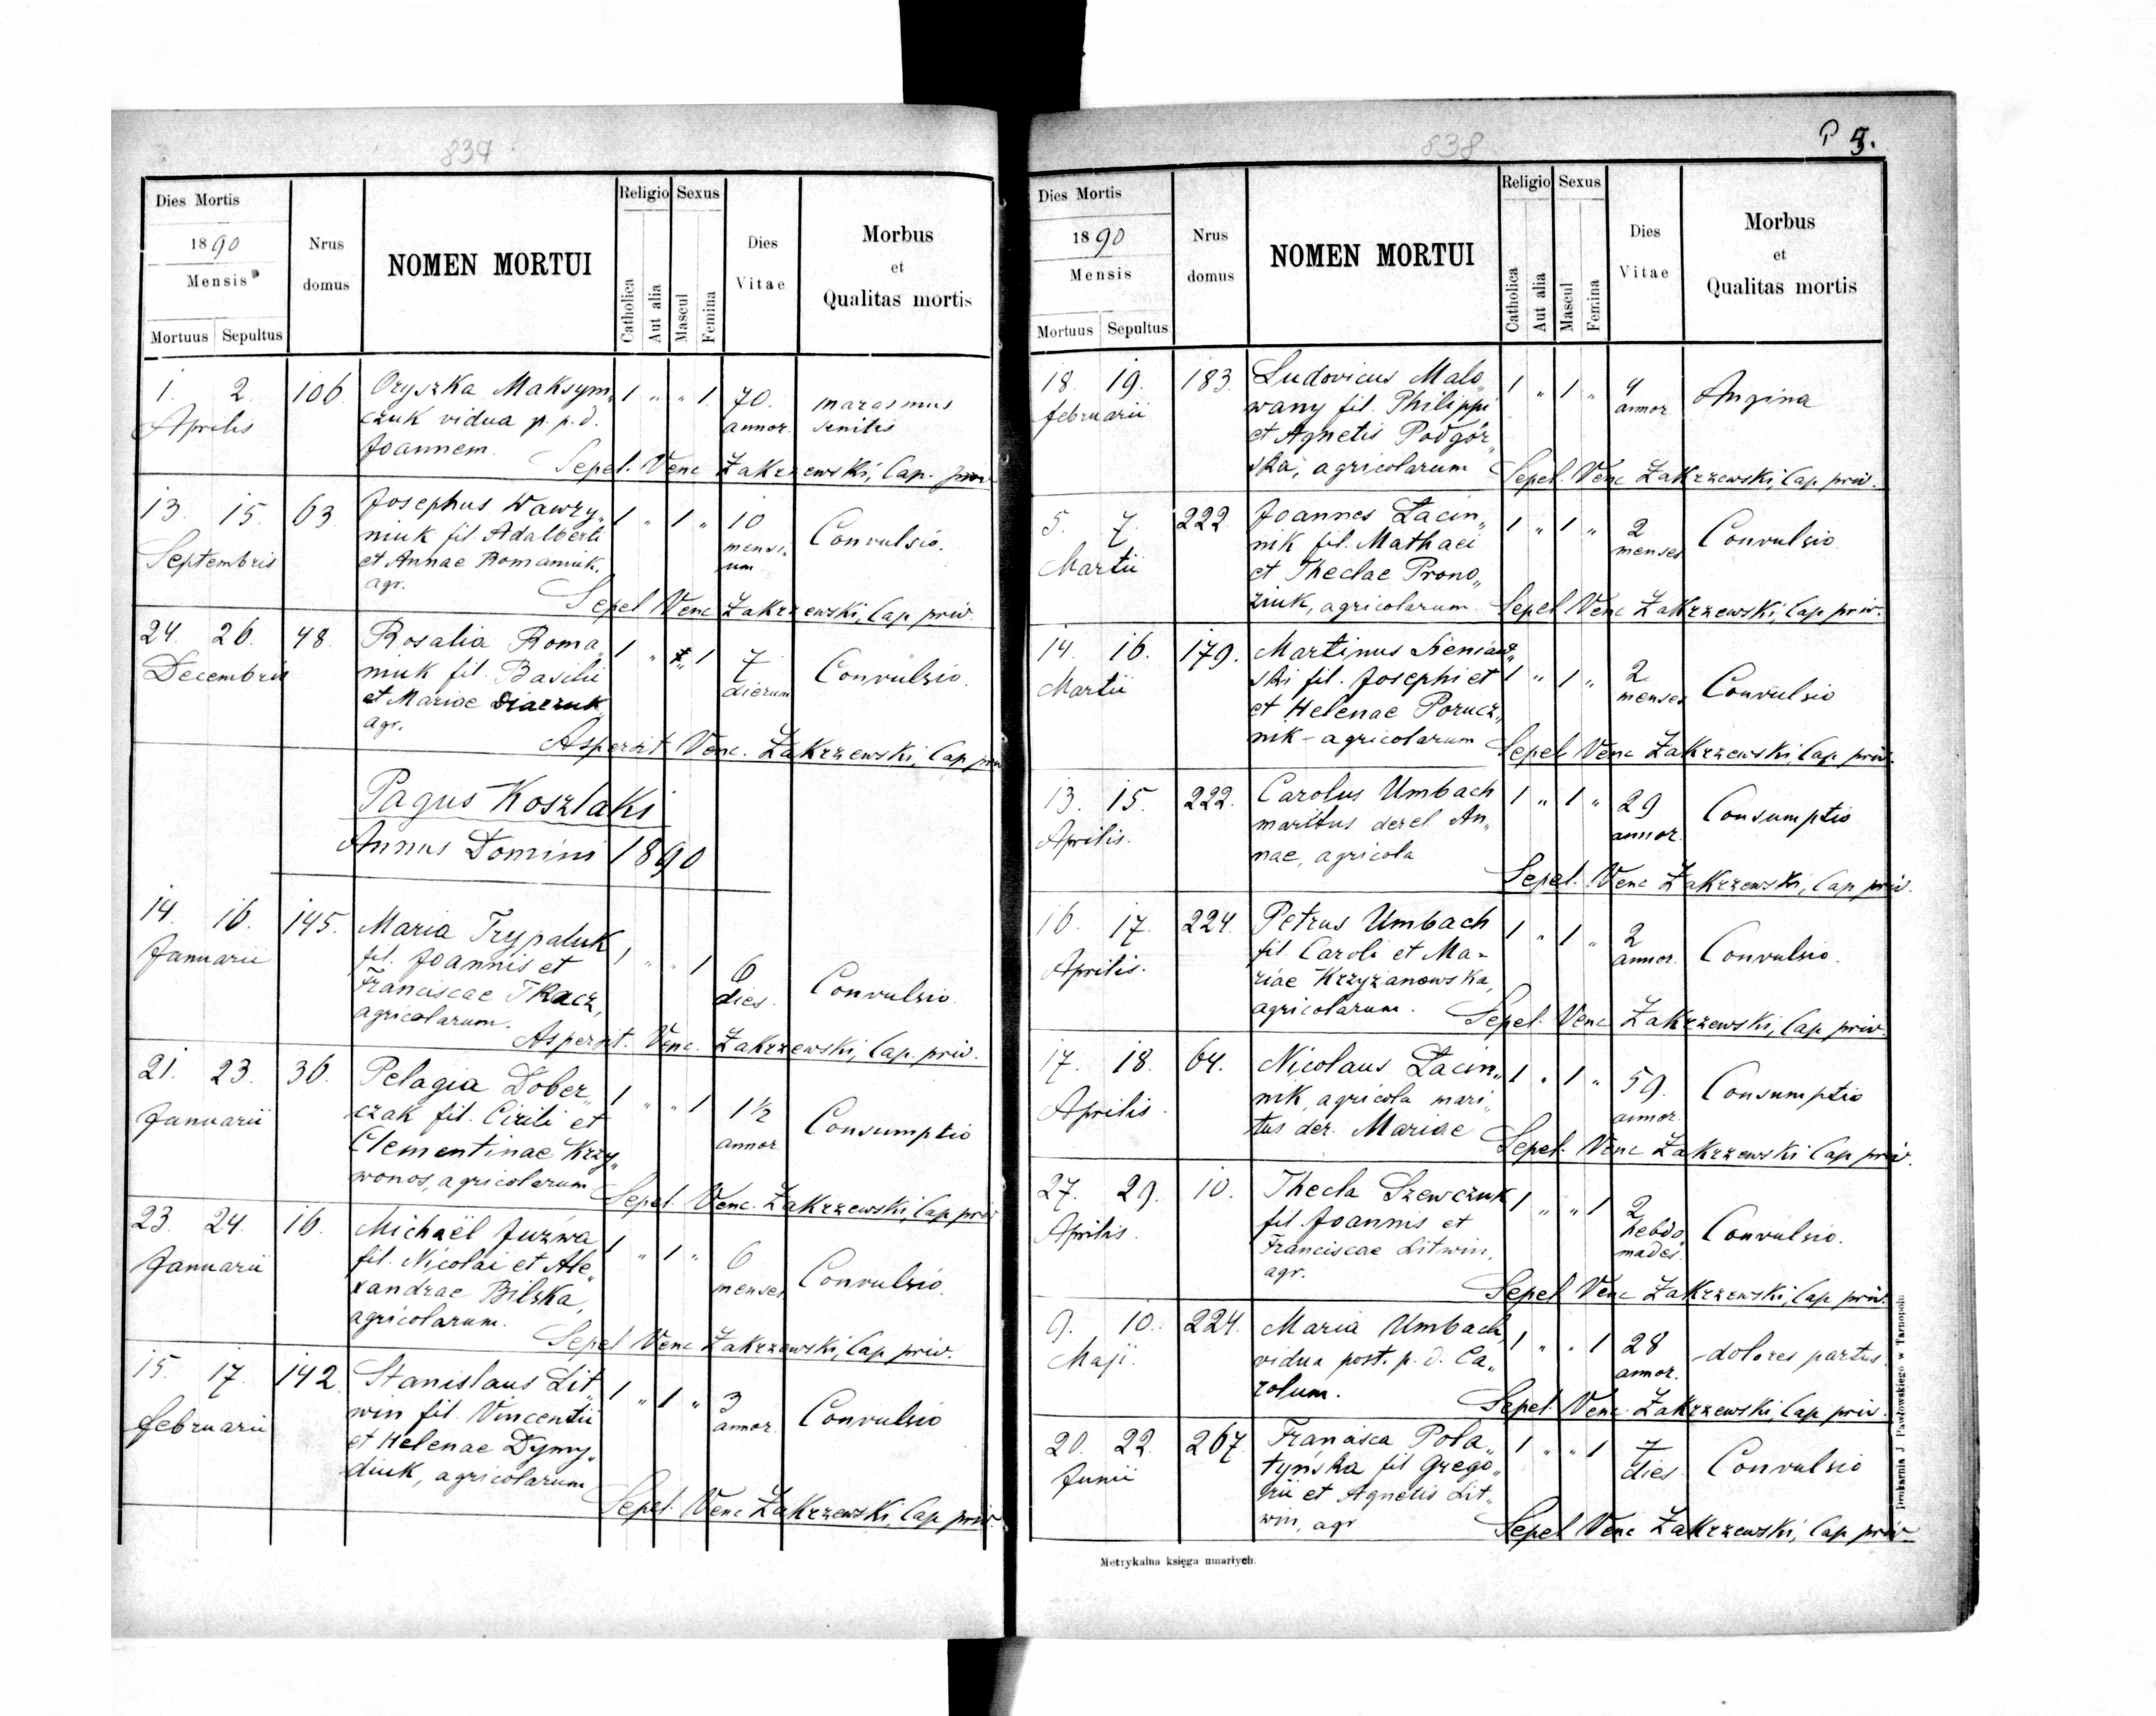 837
Dies Mortis
1890
Mensis
Mortuus Sepultus
Nrus domus
NOMEN MORTUI
Religio
Catholica
Aut alia
Sexus
Mascul
Femina
Dies Vitae
Morbus
et
Qualitas mortis
1. 2 106 Oryszka Maksym„ 1 „ „ 1. 70. marasmus
Aprilis czuk vidua p. p. d. annor. senilis
Joannem
Sepel. Venc Zakrzewski, Cap. priv
13. 15. 63 Josephus Wawry„ 1 „ 1 „ 10 Convulsio.
Septembris niuk fil Adalberti mensi„
et Annae Romaniuk, um
agr.
Sepel Venc Zakrzewski, Cap priv.
24. 26. 48 Rosalia Roma„ 1 „ „ 1 7 Convulsio.
Decembris niuk fil. Basilii dierum
et Mariae Diaczuk
agr.
Aspersit Venc. Zakrzewski, Cap priv
Pagus Koszlaki
Annus Domini 1890
14. 16. 145. Maria Trypaluk 1 „ „ 1 6 Convulsio.
Januarii fil. Joannis et dies.
Franciscae Tkacz,
agricolarum.
Aspersit. Venc. Zakrzewski, Cap. priv.
21. 23. 36. Pelagia Dober„ 1 „ „ 1 1½ Consumptio
Januarii czak fil. Cirili et annor
Clementinae Krzy„
wonos, agricolarum
Sepel. Venc. Zakrzewski, Cap priv
23. 24. 16. Michaël Juźwa 1 „ 1 „ 6 Convulsio.
Januarii fil. Nicolai et Ale„ menses
xandrae Bilska,
agricolarum.
Sepel Venc Zakrzewski, Cap priv.
15. 17. 142 Stanislaus Lit„ 1 „ 1 „ 3 Convulsio
februarii win fil. Vincentii annor.
et Helenae Dymy„
diuk, agricolarum
Sepel. Venc Zakrzewski, Cap priv.
838
5.
Dies Mortis
1890
Mensis
Mortuus Sepultus
Nrus domus
NOMEN MORTUI
Religio
Catholica
Aut alia
Sexus
Mascul
Femina
Dies Vitae
Morbus
et
Qualitas mortis
18. 19. 183. Ludovicus Malo„ 1 „ 1 „ 4 Angina
februarii wany fil. Philippi annor
et Agnetis Podgór„
ska, agricolarum
Sepel. Venc Zakrzewski, Cap priv.
5. 7. 222 Joannes Łacin„ 1 „ 1 „ 2 Convulsio
Martii nik fil. Mathaei menses
et Theclae Prono„
ziuk, agricolarum
Sepel Venc Zakrzewski, Cap priv.
14. 16. 179. Martinus Sieniaw„ 1 „ 1 „ 2 Convulsio
Martii ski fil. Josephi et menses
et Helenae Porucz„
nik - agricolarum
Sepel Venc Zakrzewski, Cap priv.
13. 15. 222. Carolus Umbach 1 „ 1 „ 29 Consumptio
Aprilis. maritus derel An„ annor.
nae, agricola
Sepel. Venc Zakrzewski, Cap priv.
16. 17. 224. Petrus Umbach 1 „ 1 „ 2 Convulsio.
Aprilis. fil. Caroli et Ma- annor.
riae Krzyżanowska,
agricolarum.
Sepel. Venc Zakrzewski, Cap priv.
17. 18. 64. Nicolaus Łacin„ 1 „ 1 „ 59. Consumptio
Aprilis. nik, agricola mari„ annor.
tus der. Mariae
Sepel. Venc Zakrzewski Cap priv.
27. 29. 10. Thecla Szewczuk 1 „ „ 1 2 Convulsio.
Aprilis. fil Joannis et hebdo„
Franciscae Litwin, mades.
agr.
Sepel Venc Zakrzewski, Cap priv.
9. 10. 224. Maria Umbach, 1 „ „ 1 28 dolores partus
Maji. vidua post. p. d. Ca„ annor.
rolum.
Sepel Venc. Zakrzewski, Cap priv.
20. 22. 267. Francisca Pola„ 1 „ „ 1 7 Convulsio
Junii tyńska fil Grego„ dies
rii et Agnetis Lit„
win, agr
Sepel Venc Zakrzewski, Cap priv
Metrykalna księga umarłych.
Drukarnia J. Pawłowskiego w Tarnopolu